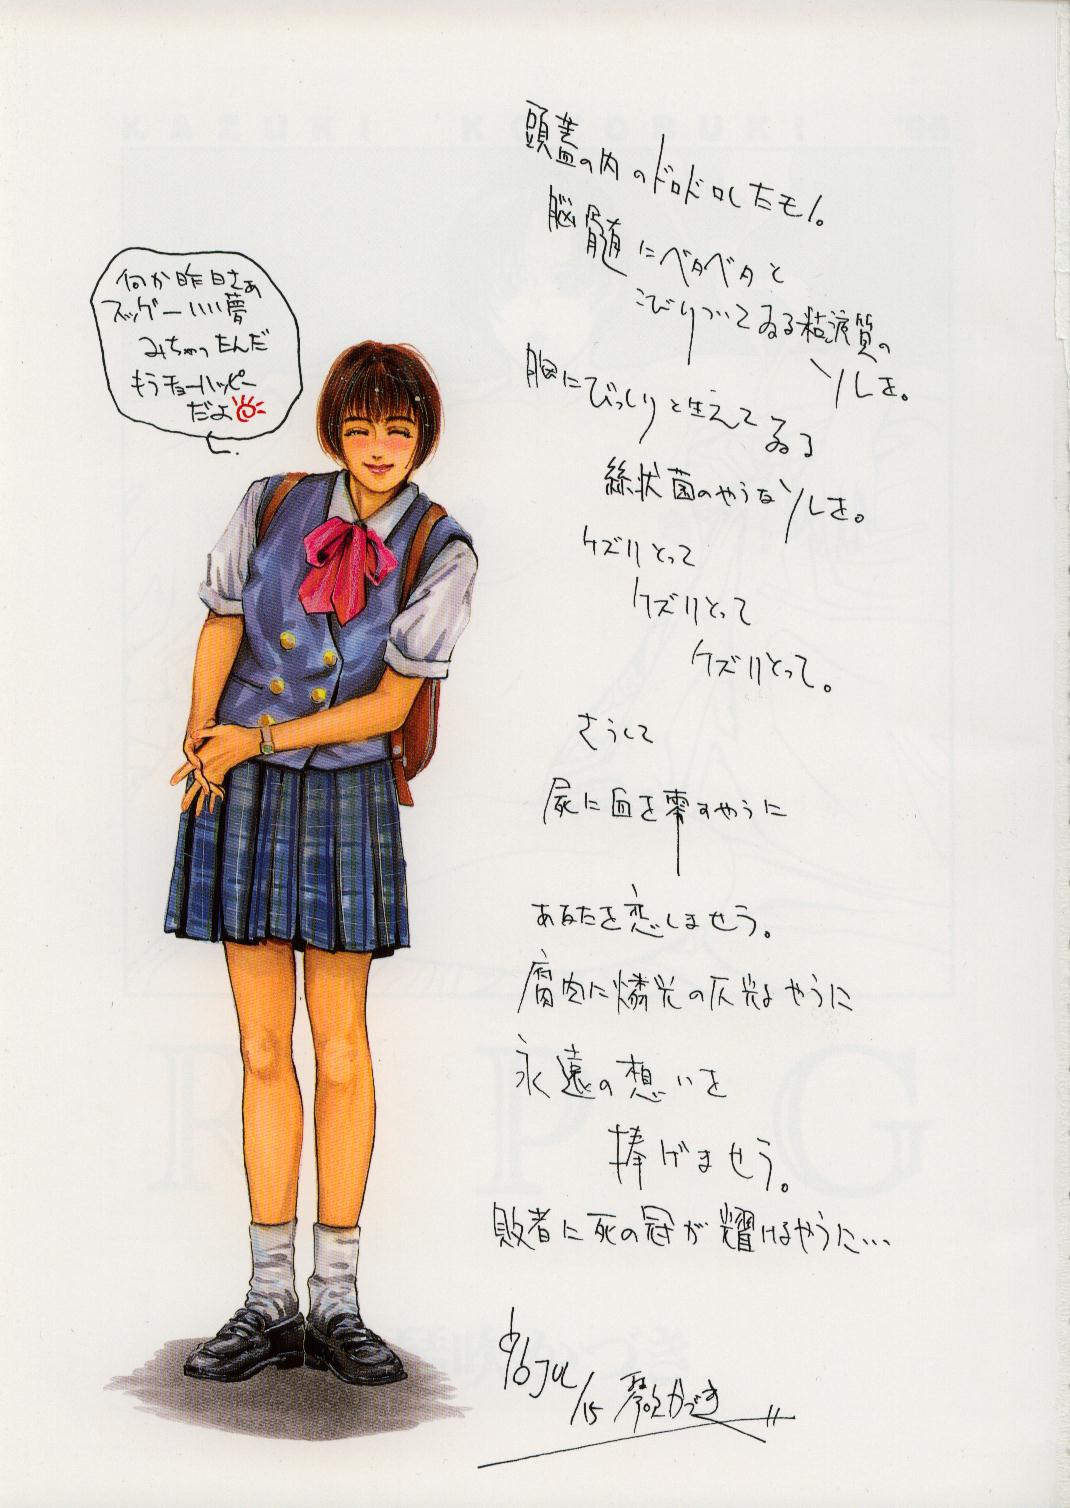 何か昨日さぁ
スッゲーいい夢
みちゃったんだ
もうチョーハッピー
だよ
頭蓋の内のドロドロしたモノ。
脳髄にベタベタと
こびりついてゐる粘液質の
ソレを。
胸にびっしりと生えてゐる
絲状菌のやうなソレを。
ケズリとって
ケズリとって
ケズリとって。
さうして
尻に血を零すやうに
あなたを恋しませう。
腐肉に燐光の仄光るやうに
永遠の想いを
捧げませう。
敗者に死の冠が耀けるやうに…
'96 JUL
/15 琴吹かづき
KAZUKI KOTOBUKI '96
R P G